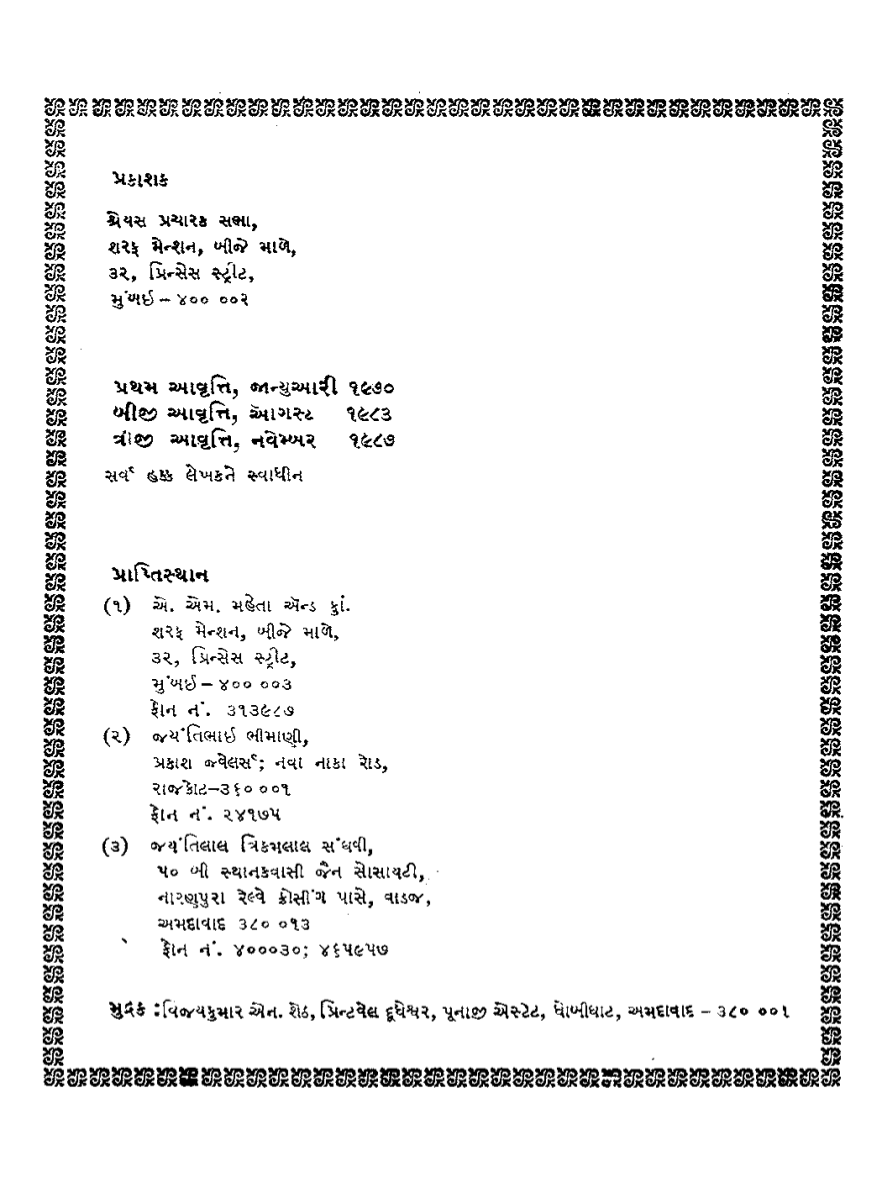 પ્રકાશક
શ્રેયસ પ્રચારક સભા,
શરફ મેન્શન, બીજે માળે,
૩૨, પ્રિન્સેસ સ્ટ્રીટ,
મુંબઈ – ૪૦૦ ૦૦૨
પ્રથમ આવૃત્તિ, જાન્યુઆરી ૧૯૭૦
બીજી આવૃત્તિ, ઑગસ્ટ ૧૯૮૩
ત્રીજી આવૃત્તિ, નવેમ્બર ૧૯૮૭
સર્વ હક્ક લેખકને સ્વાધીન
પ્રાપ્તિસ્થાન
(૧) એ. એમ. મહેતા ઍન્ડ કું.
શરફ મેન્શન, બીજે માળે,
૩૨, પ્રિન્સેસ સ્ટ્રીટ,
મુંબઈ – ૪૦૦ ૦૦૩
ફોન નં. ૩૧૩૯૮૭
(૨) જયંતિભાઈ ભીમાણી,
પ્રકાશ જ્વેલર્સ; નવા નાકા રોડ,
રાજકોટ–૩૬૦ ૦૦૧
ફોન નં. ૨૪૧૭૫
(૩) જયંતિલાલ ત્રિકમલાલ સંઘવી,
૫૦ બી સ્થાનકવાસી જૈન સોસાયટી,
નારણપુરા રેલ્વે ક્રોસીંગ પાસે, વાડજ,
અમદાવાદ ૩૮૦ ૦૧૩
ફોન નં. ૪૦૦૦૩૦; ૪૬૫૯૫૭
મુદ્રક : વિજયકુમાર એન. શેઠ, પ્રિન્ટવેલ દૂધેશ્વર, પૂનાજી એસ્ટેટ, ધોબીઘાટ, અમદાવાદ – ૩૮૦ ૦૦૧